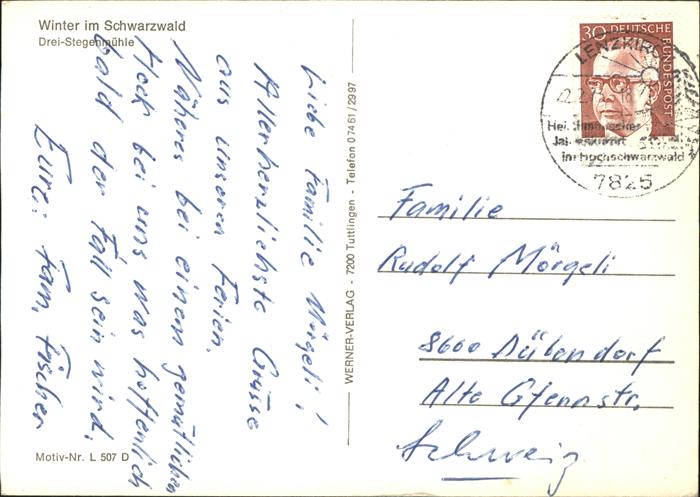 Winter im Schwarzwald
Drei-Stegenmühle
Liebe Familie Mörgeli!
Allerherzlichste Grüsse
aus unseren Ferien.
Näheres bei einem gemütlichen
Hock bei uns was hoffentlich
bald der Fall sein wird.
Eure: Fam. Fischer
Motiv-Nr. L 507 D
WERNER-VERLAG - 7200 Tuttlingen - Telefon 07461/2997
30 DEUTSCHE
BUNDESPOST
LENZKIRCH
Heilklimatischer
im Hochschwarzwald
7825
Familie
Rudolf Mörgeli
8600 Dübendorf
Alte Gfennstr.
Schweiz